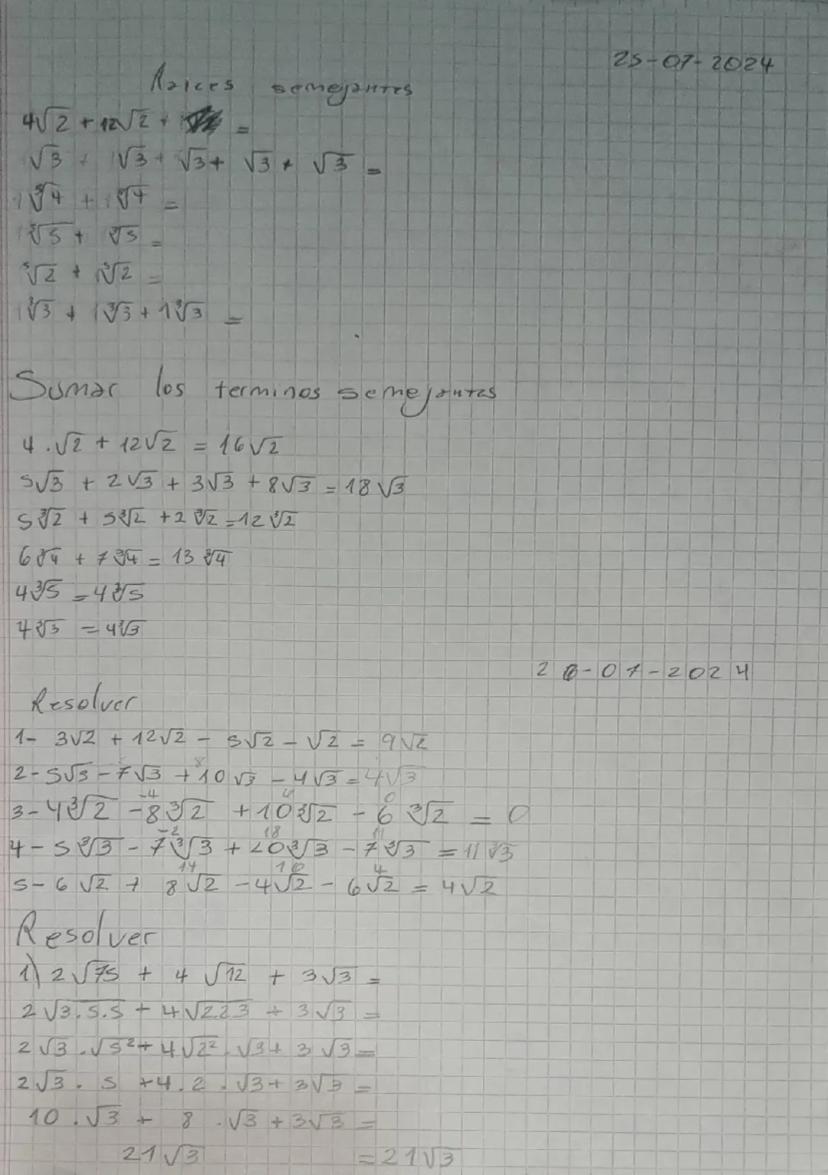 25-07-2024
Raices semejantes
4√2 + 12√2 + =
√3 + √3 + √3 + √3 + √3 =
∛4 + ∛4 =
∛5 + ∛5 =
∛2 + ∛2 =
1∛3 + 1∛3 + 1∛3 =
Sumar los terminos semejantes
4 . √2 + 12√2 = 16√2
5√3 + 2√3 + 3√3 + 8√3 = 18√3
5∛2 + 5∛2 + 2∛2 = 12∛2
6∛4 + 7∛4 = 13∛4
4∛5 = 4∛5
4∛3 = 4∛3
26-07-2024
Resolver
1- 3√2 + 12√2 - 5√2 - √2 = 9√2
2- 5√3 - 7√3 + 10√3 - 4√3 = 4√3
-4 4 0
3- 4∛2 - 8∛2 + 10∛2 - 6∛2 = 0
-2 18 11
4- 5∛3 - 7∛3 + 20∛3 - 7∛3 = 11∛3
14 10 4
5- 6√2 + 8√2 - 4√2 - 6√2 = 4√2
Resolver
1) 2√75 + 4√12 + 3√3 =
2√3.5.5 + 4√2.2.3 + 3√3 =
2√3 . √5² + 4√2² . √3 + 3√3 =
2√3 . 5 + 4 . 2 . √3 + 3√3 =
10 . √3 + 8 . √3 + 3√3 =
21√3 = 21√3